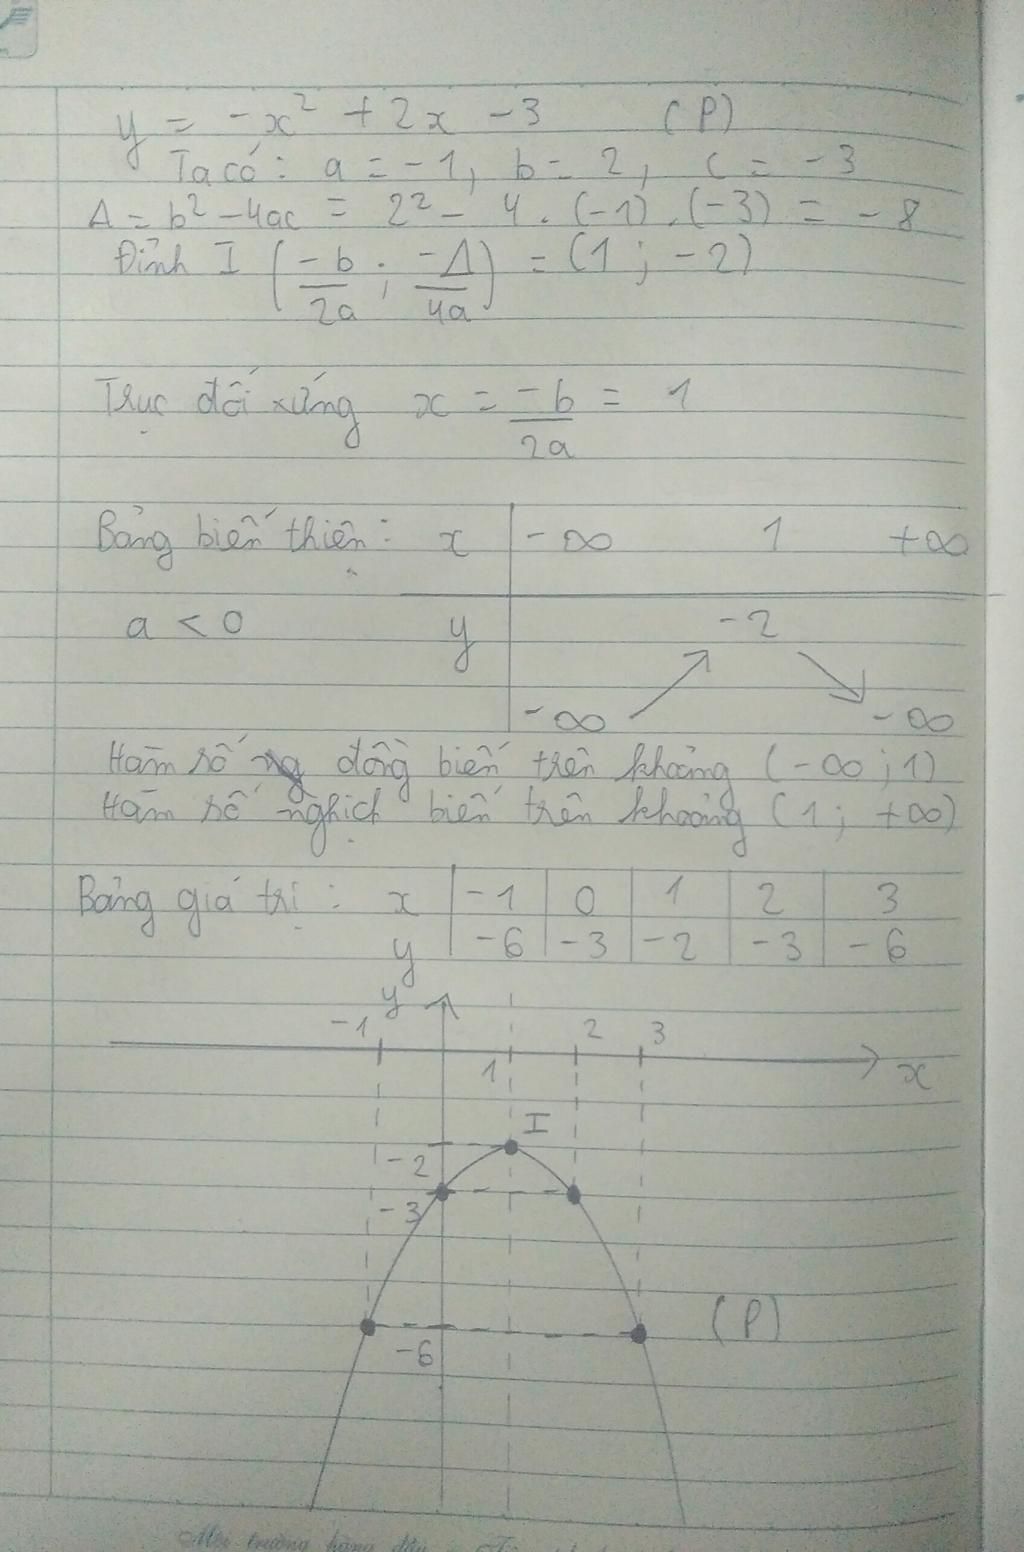 y = -x² + 2x - 3 (P)
Ta có: a = -1, b = 2, c = -3
Δ = b² - 4ac = 2² - 4 . (-1) . (-3) = -8
Đỉnh I (-b/2a ; -Δ/4a) = (1 ; -2)
Trục đối xứng x = -b/2a = 1
Bảng biến thiên: x -∞ 1 +∞
a < 0 y -2
-∞ -∞
Hàm số đồng biến trên khoảng (-∞ ; 1)
Hàm số nghịch biến trên khoảng (1 ; +∞)
Bảng giá trị: x -1 0 1 2 3
y -6 -3 -2 -3 -6
y
-1 2 3
1 x
I
-2
-3
(P)
-6
Môi trường hàng đầu